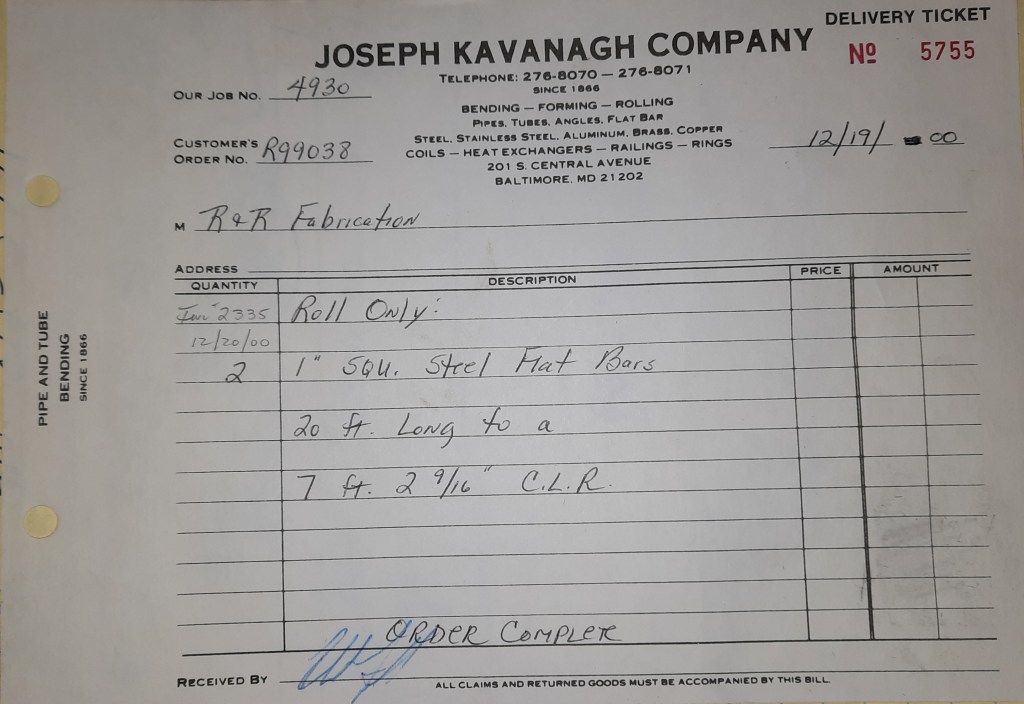 DELIVERY TICKET
JOSEPH KAVANAGH COMPANY
No 5755
TELEPHONE: 276-8070 — 276-8071
SINCE 1866
OUR JOB NO. 4930
BENDING — FORMING — ROLLING
PIPES, TUBES, ANGLES, FLAT BAR
STEEL, STAINLESS STEEL, ALUMINUM, BRASS, COPPER
CUSTOMER'S ORDER NO. R99038
COILS — HEAT EXCHANGERS — RAILINGS — RINGS
12/19/ 00
201 S. CENTRAL AVENUE
BALTIMORE, MD 21202
M R & R Fabrication
ADDRESS
QUANTITY DESCRIPTION PRICE AMOUNT
Inv # 2335 Roll Only:
12/20/00
2 1" SQU. Steel Flat Bars
20 ft. Long to a
7 ft. 2 9/16" C.L.R.
ORDER COMPLETE
RECEIVED BY
ALL CLAIMS AND RETURNED GOODS MUST BE ACCOMPANIED BY THIS BILL.
PIPE AND TUBE
BENDING
SINCE 1866